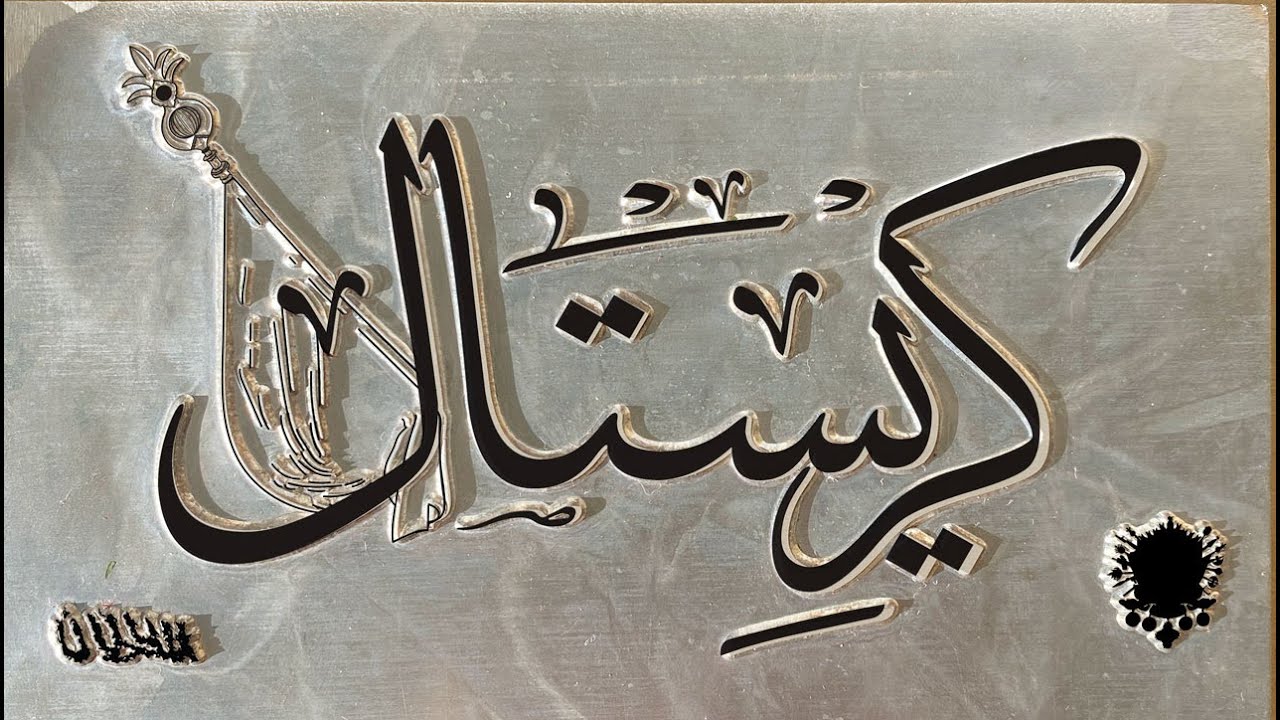 كريستال